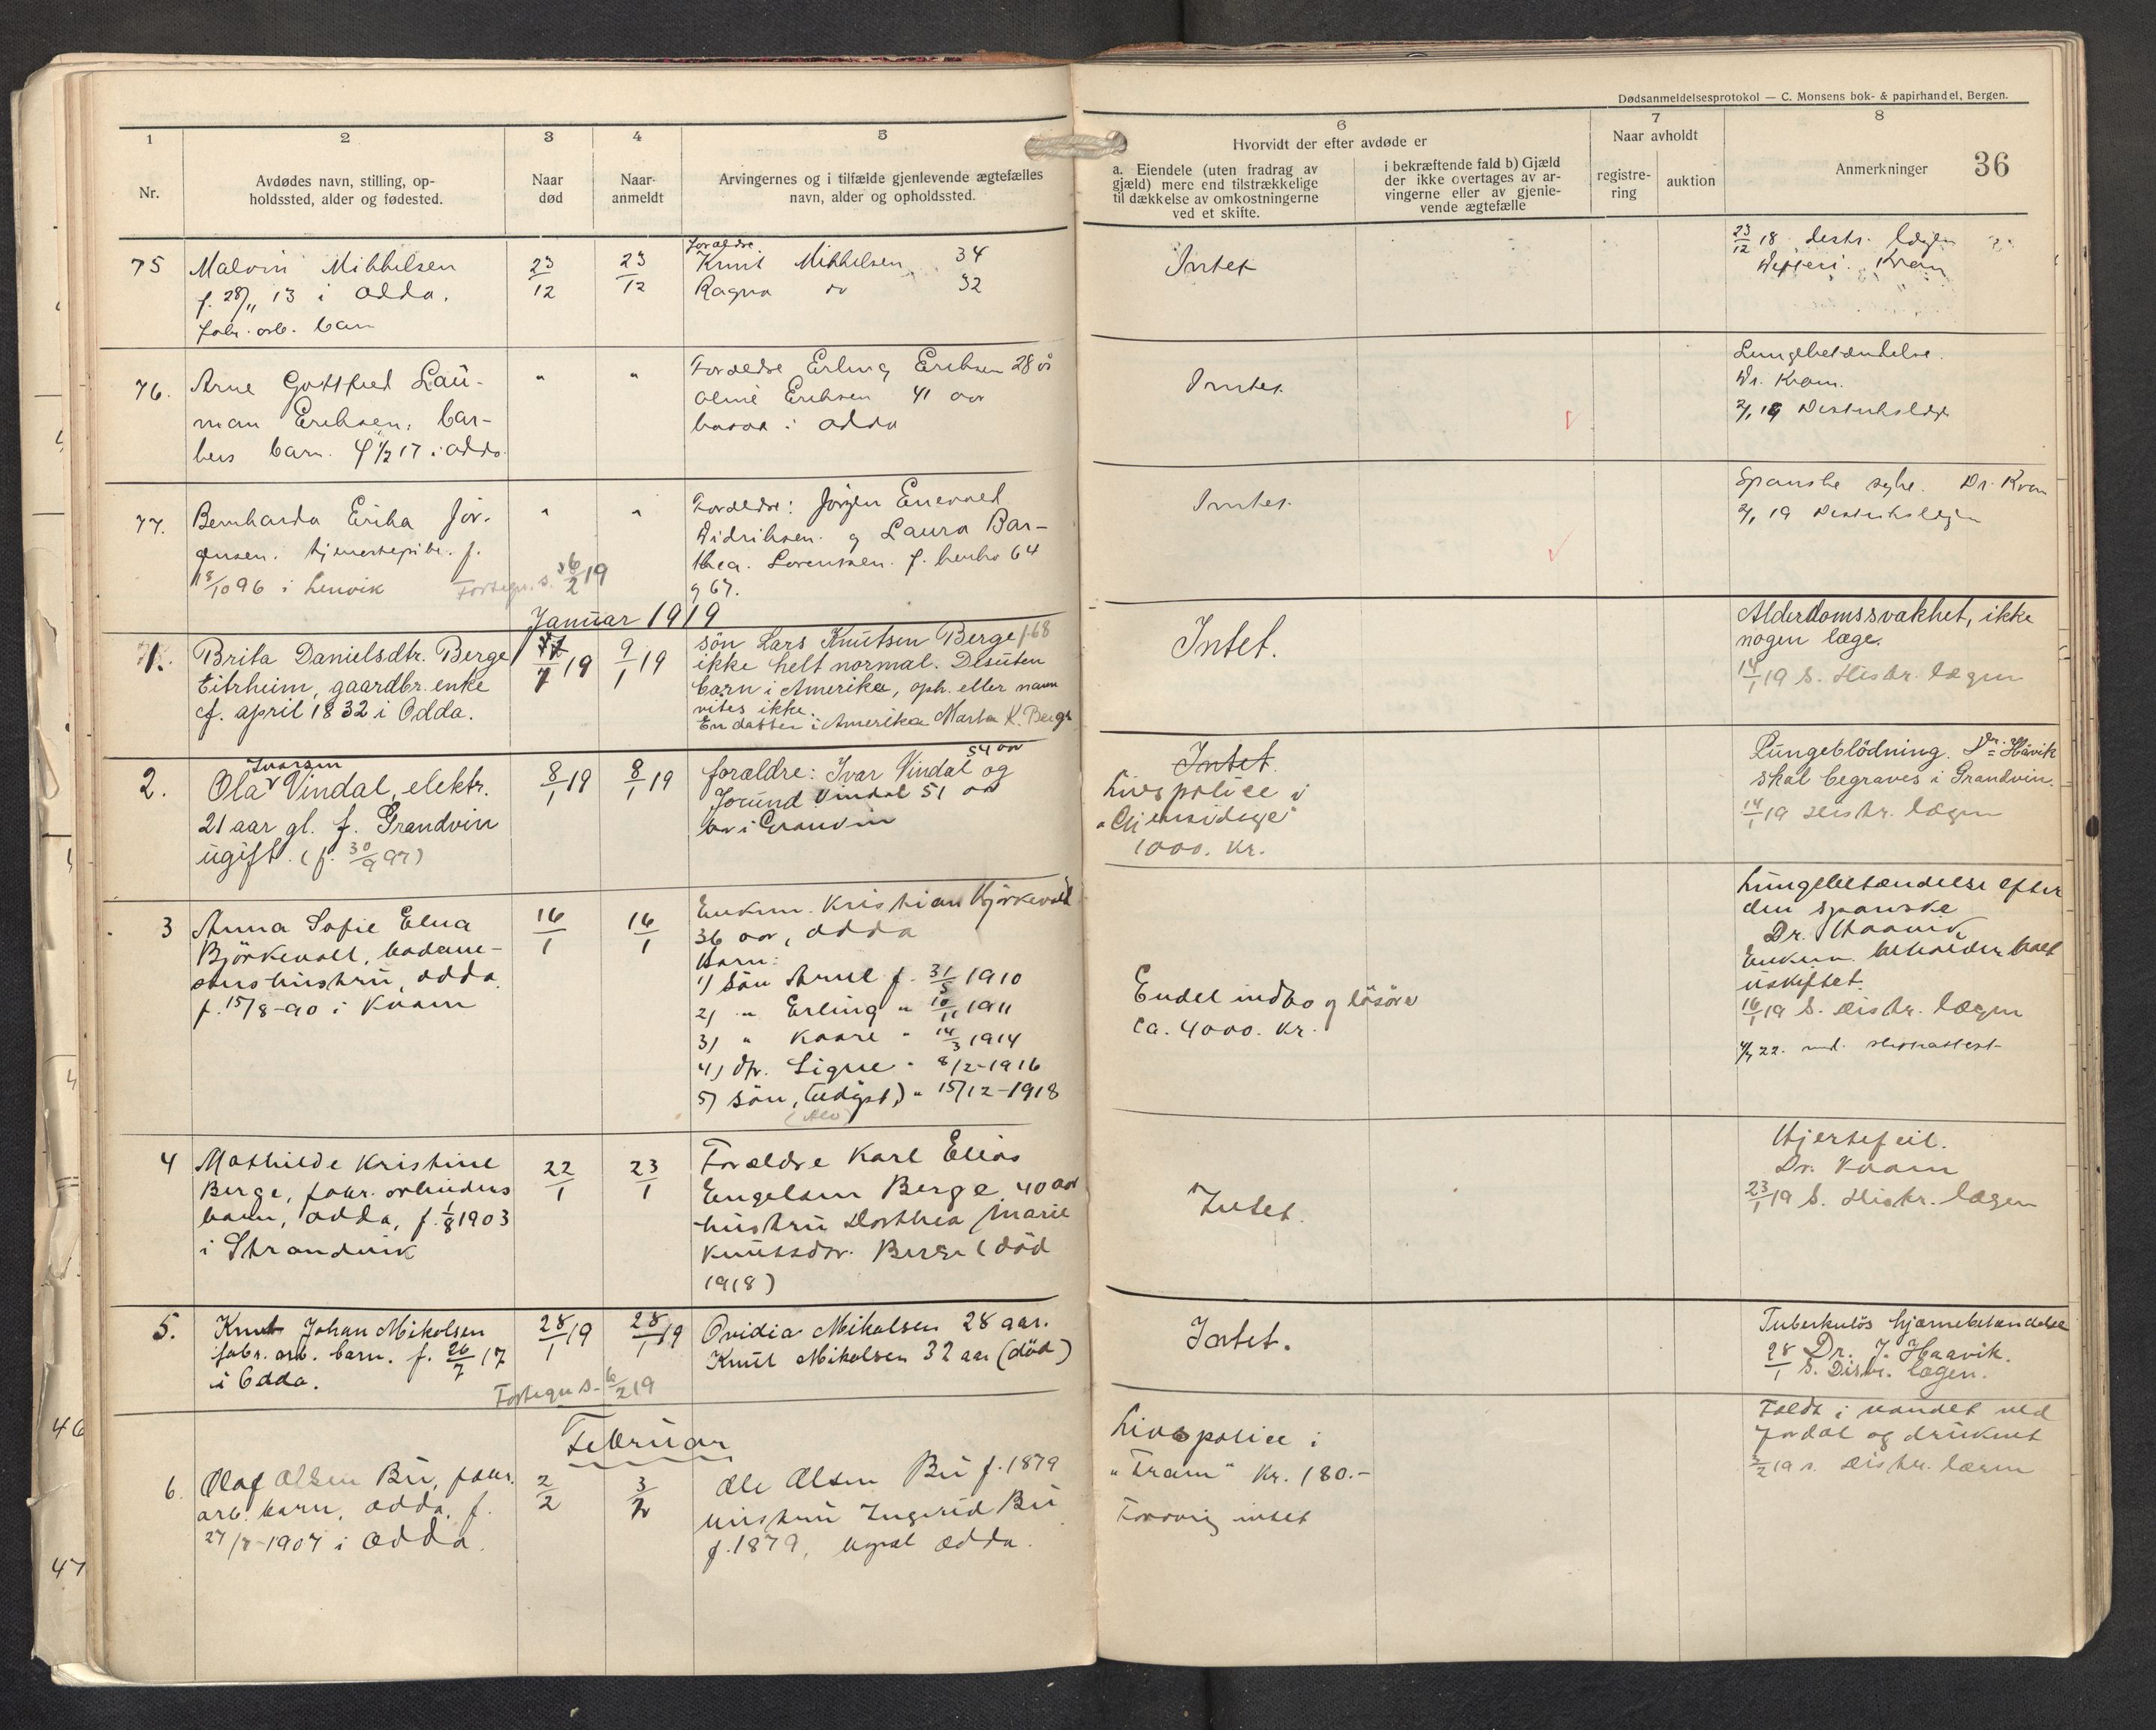 Dødsanmeldelsesprotokol — C. Monsens bok- & papirhandel, Bergen.
36
1
Nr.
2
Avdødes navn, stilling, op-
holdssted, alder og fødested.
3
Naar
død
4
Naar
anmeldt
5
Arvingernes og i tilfælde gjenlevende ægtefælles
navn, alder og opholdssted.
6
Hvorvidt der efter avdøde er
a. Eiendele (uten fradrag av
gjæld) mere end tilstrækkelige
til dækkelse av omkostningerne
ved et skifte.
i bekræftende fald b) Gjæld
der ikke overtages av ar-
vingerne eller av gjenle-
vende ægtefælle
7
Naar avholdt
registre-
ring
auktion
8
Anmerkninger
75
Malvin Mikkelsen
f. 28/11 13 i Odda.
fabr. arb. barn
23/12
23/12
Forældre
Knut Mikkelsen 34
Ragna do 32
Intet
23/12 18 distr. lægen
Kvam
76.
Arne Gottfred Lau-
man Eriksen, bar-
bers barn. i Odda
"
"
Forældre Erling Eriksen 28 år
Eriksen 41 aar
i Odda
Intet
Lungebetændelse.
Dr. Kvam.
2/1 19 Distriktslægen
77.
Bernharda Erika Jör-
gensen. tjenestepike. f.
18/10 96 i Lenvik
"
"
Forældre: Jörgen Enevold
Didriksen og Laura Bar-
thea Lorentsen. f. henho 64
og 67.
Intet.
Spanske syke. Dr. Kvam
2/1 19 Distriktslægen
Fortegn. s. 26/2 19
Januar 1919
1.
Brita Danielsdtr. Berge
Eitrheim, gaardbr. enke
f. april 1832 i Odda.
19
9/1 19
sön Lars Knutsen Berge f. 68
ikke helt normal. Desuten
barn i Amerika, oph. eller navn
vites ikke.
En datter i Amerika Marta K. Berge
Intet.
Alderdomssvakhet, ikke
nogen læge.
14/1 19 s. distr. lægen
2.
Ivarsen
Ola Vindal, elektr.
21 aar gl. f. Grandvin
ugift. (f. 30/9 97)
8/1 19
8/1 19
54 aar
forældre: Ivar Vindal og
Jorund Vindal 51 aar
bor i Granvin
Intet
Livspolice i
"Gjensidige"
1000. kr.
Lungeblödning. Dr. Håvik
skal begraves i Grandvin.
14/1 19 distr. lægen
3
Anna Sofie Elna
Björkevoll, bademe-
sters hustru, Odda
f. 15/8-90 i Kvam
16/1
16/1
Enkem. Kristian Björkevold
36 aar, Odda
Barn:
1) Sön Arne f. 31/5 1910
2) " Erling " 10/11 1911
3) " Kaare " 14/3 1914
4) dtr. Signe " 8/2-1916
5) sön, (udöpt) " 15/12-1918
Endel indbo og lösöre
ca. 4000. kr.
Lungebetændelse efter
den spanske
Dr. Haavik
Enkem. beholder boet
uskiftet.
16/1 19 s. distr. lægen
4
Mathilde Kristine
Berge, fabr. arbeiders
barn, Odda, f. 1/8 1903
i Strandvik
22/1
23/1
Forældre Karl Elias
Engelsen Berge, 40 aar
hustru Dorthea Marie
Knutsdtr. Berge (död
1918)
Intet.
Hjertefeil.
Dr. Kvam
23/1 19 s. distr. lægen
5.
Knut Johan Mikalsen
fabr. arb. barn. f. 26/7 17
i Odda.
28/1 19
28/1 19
Ovidia Mikalsen 28 aar.
Knut Mikalsen 32 aar (död)
Intet.
Tuberkulös hjernebetændelse
Dr. J. Haavik.
28/1 s. Distr. lægen.
Fortegn s. 6/2 19
Februar
6.
Olaf Olsen Bu, fabr.
arb. barn, Odda, f.
1907 i Odda.
2/2
3/2
Ole Olsen Bu f. 1879
hustru Ingerid Bu
f. 1879, Odda.
Livspolice i
"Fram" kr. 180.-
Forövrig intet
Faldt i vandet ved
Jordal og druknet
3/2 19 s. distr. lægen
46
47